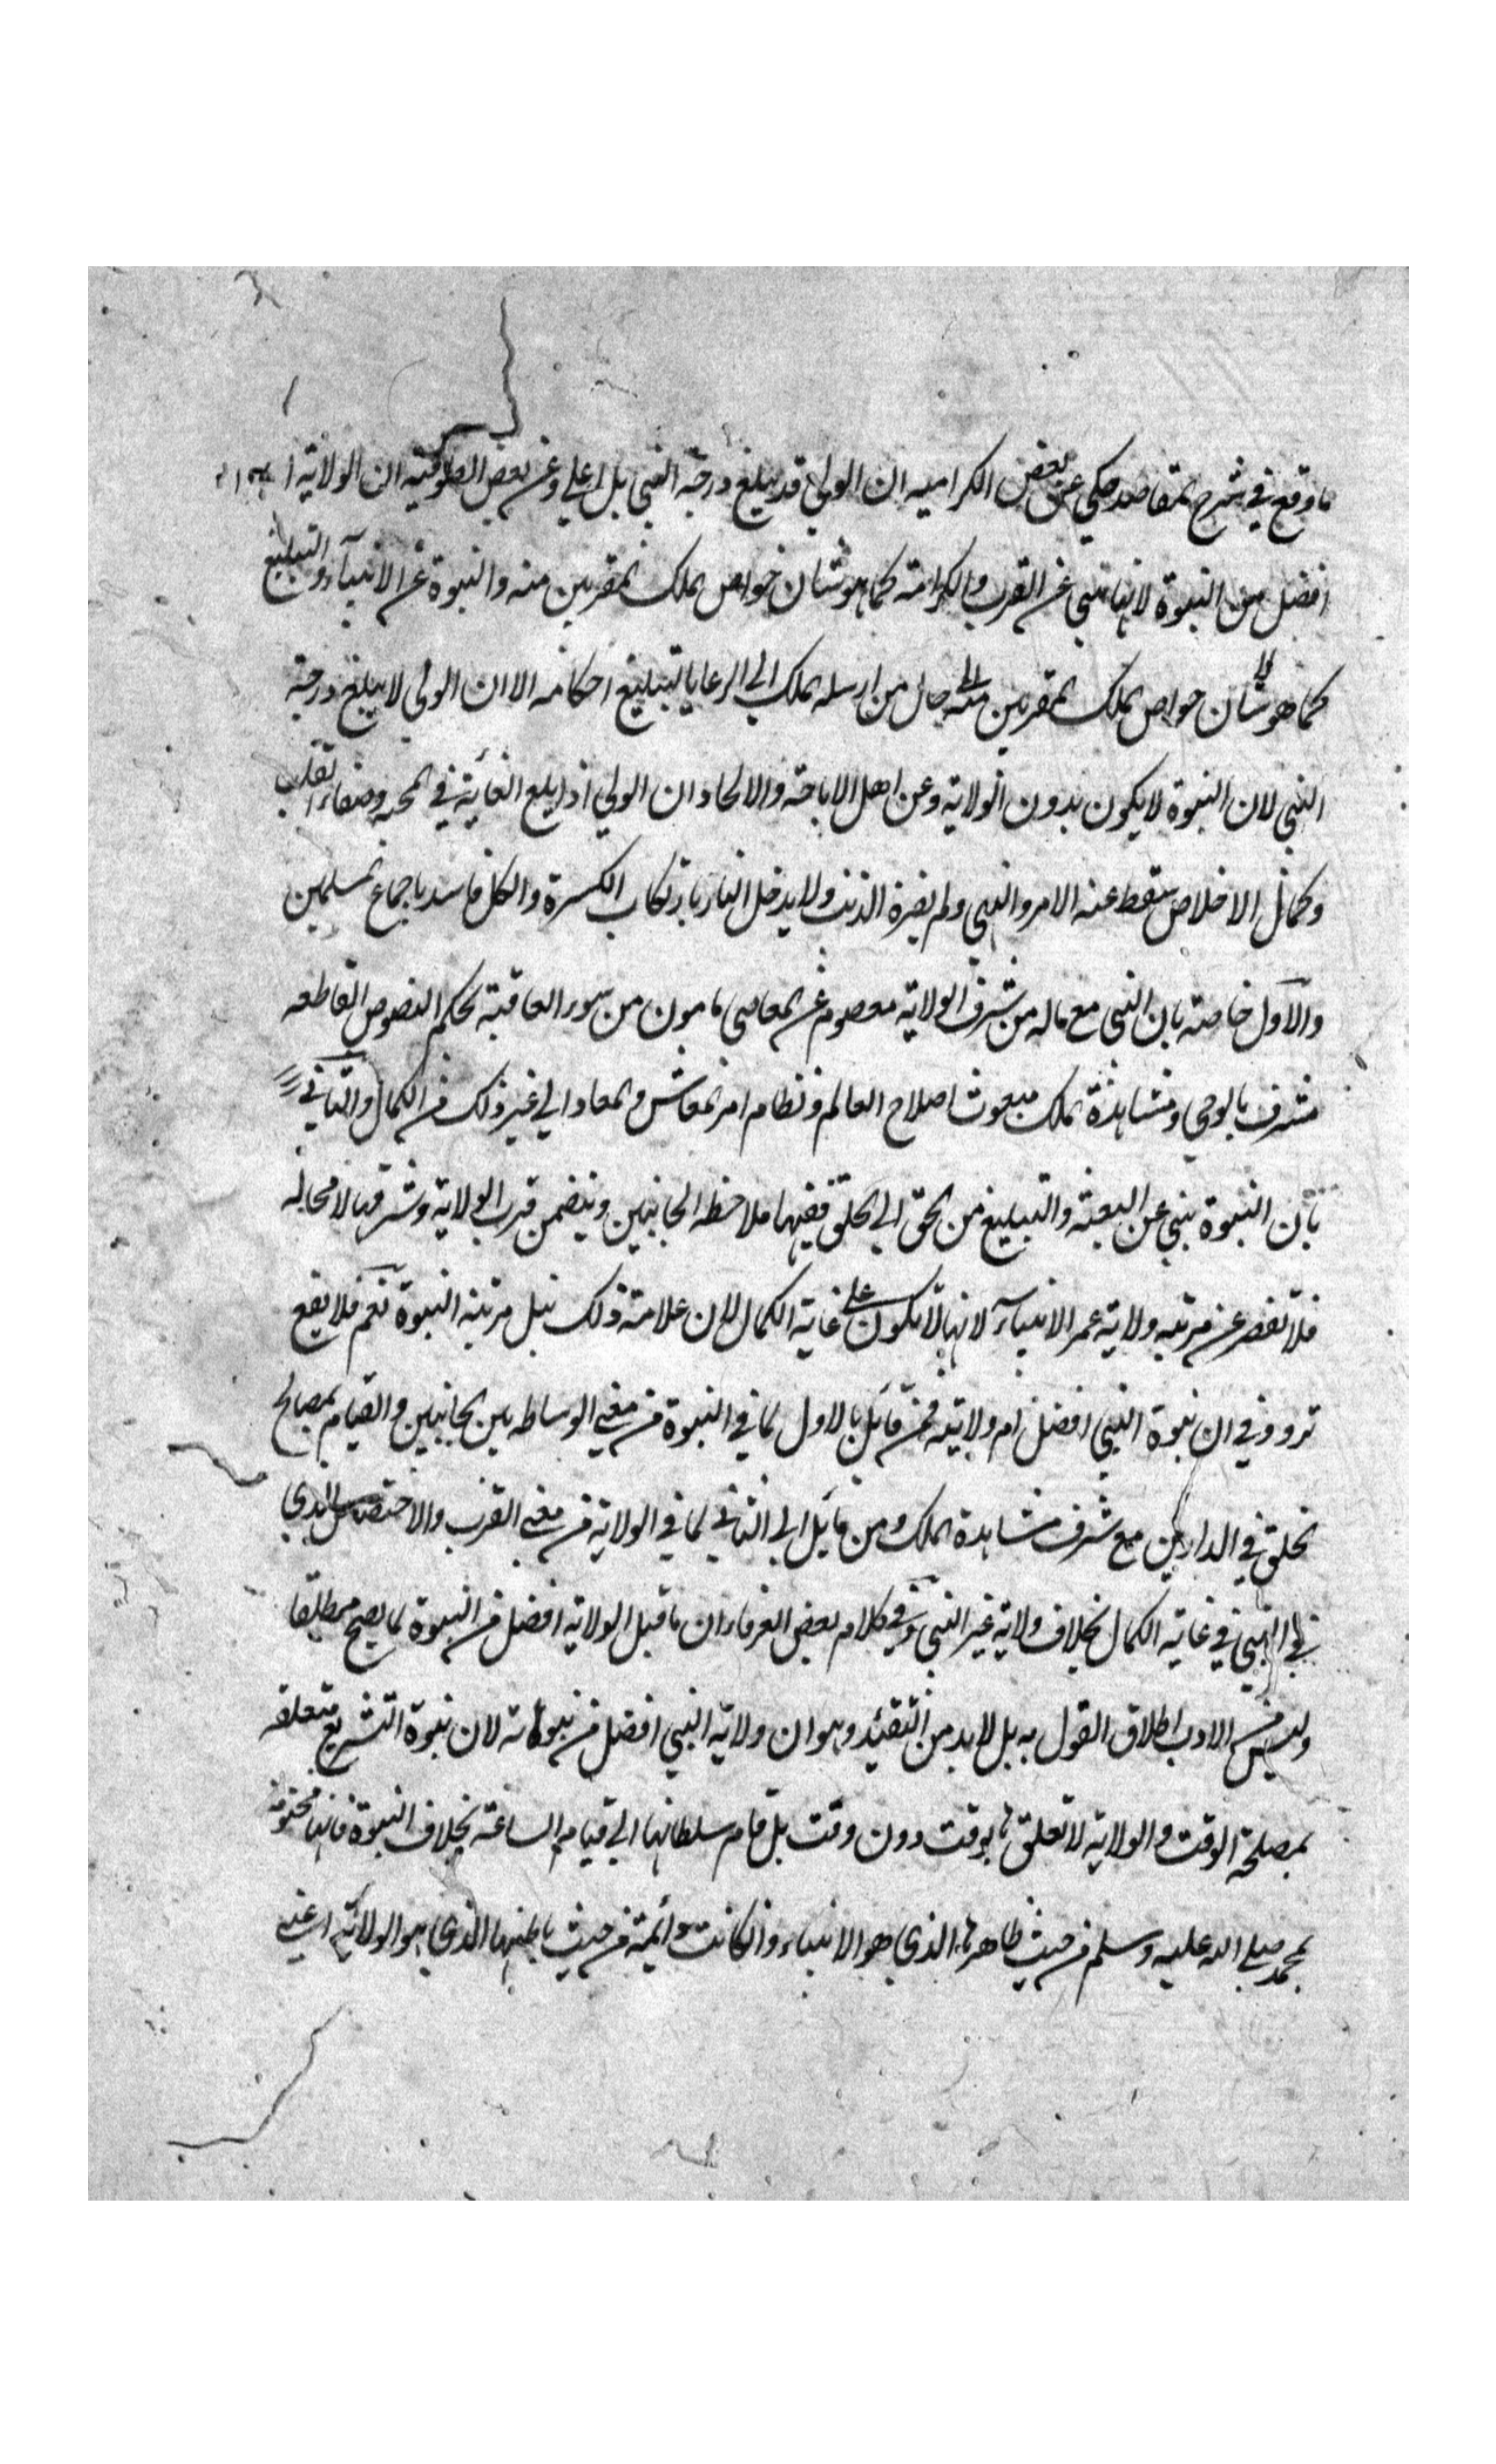 ما وقع في شرح المقاصد حكي عن بعض الكراميه ان الولي قد يبلغ درجة النبي بل اعلي وعن بعض الصوفيه ان الولاية
افضل من النبوة لانها تنبي عن القرب والكرامة كما هو شان خواص الملك المقربين منه والنبوة عن الانبآء والتبليغ
كما هو شان خواص الملك المقربين منه حال من ارسله الملك الي الرعايا لتبليغ احكامه الا ان الولي لا يبلغ درجة
النبي لان النبوة لا يكون بدون الولاية وعن اهل الاباحة والالحاد ان الولي اذا بلغ الغاية في المحبه وصفاء القلب
وكمال الاخلاص سقط عنه الامر والنهي ولم يضره الذنب ولا يدخل النار بارتكاب الكبيرة والكل فاسد باجماع المسلمين
والاول خاصة بان النبي مع ماله من شرف الولاية معصوم عن المعاصي مامون من سوء العاقبة بحكم النصوص القاطعه
مشرف بالوحي ومشاهدة الملك مبعوث اصلاح العالم ونظام امر المعاش والمعاد الي غير ذلك من الكمال والثاني
بان النبوة تنبي عن البعثة والتبليغ من الحق الي الخلق ففيها ملاحظه الجانبين ويتضمن قرب الولاية وشرفها لا محاله
فلا تقصر عن مرتبه ولاية غير الانبيآء لانها لا تكون علي غاية الكمال لان علامة ذلك نيل مرتبة النبوة نعم فلا يقع
تردد في ان نبوة النبي افضل ام ولايته فمن قائل بالاول لما في النبوة من معني الوساطه بين الجانبين والقيام بمصالح
الخلق في الدارين مع شرف مشاهدة الملك ومن قائل الي الثاني لما في الولاية من معني القرب والاختصاص الذي
في النبي في غاية الكمال بخلاف ولاية غير النبي وفي كلام بعض العرفاء ان ما قيل الولاية افضل من النبوة لما يصح مطلقا
وليس من الادب اطلاق القول به بل لا بد من التقييد وهو ان ولاية النبي افضل من نبوته لان نبوة التشريع متعلقه
بمصلحة الوقت والولاية لا تعلق لها بوقت دون وقت بل قام سلطانها الي قيام الساعة بخلاف النبوة فانها مختومة
بمحمد صلي الله عليه وسلم من حيث ظاهرها الذي هو الانباء وان كانت دائمة من حيث باطنها الذي هو الولاية اعني